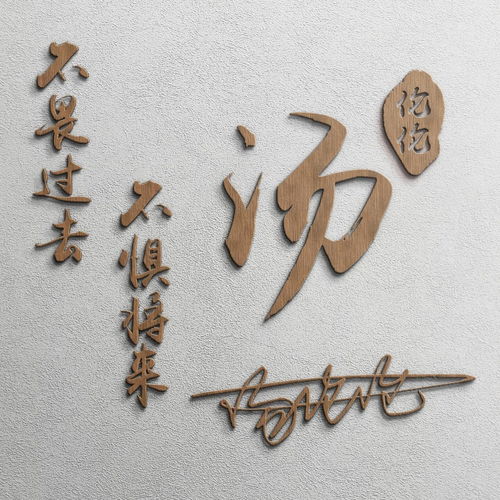 不畏过去
不惧将来
汤